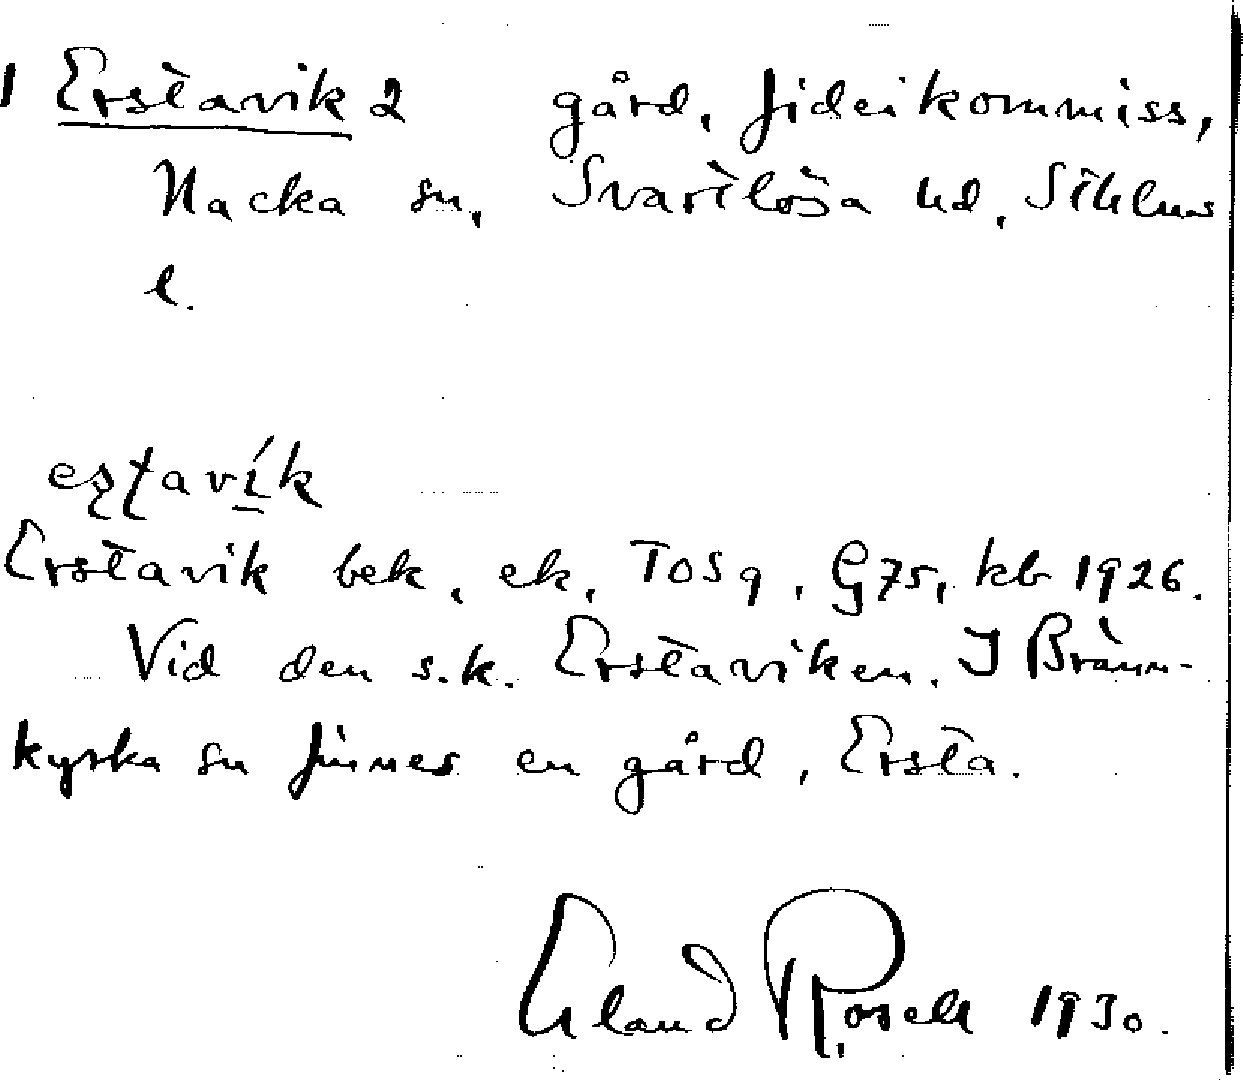 1 Erstavik 2 gård, fideikommiss,
Nacka sn, Svartlösa hd, Sthlms
l.
eʂʈavík
Erstavik bek, ek, TOS9, G75, kb 1926.
Vid den s.k. Erstaviken. I Bränn-
kyrka sn finnes en gård, Ersta.
Erland Rosell 1930.